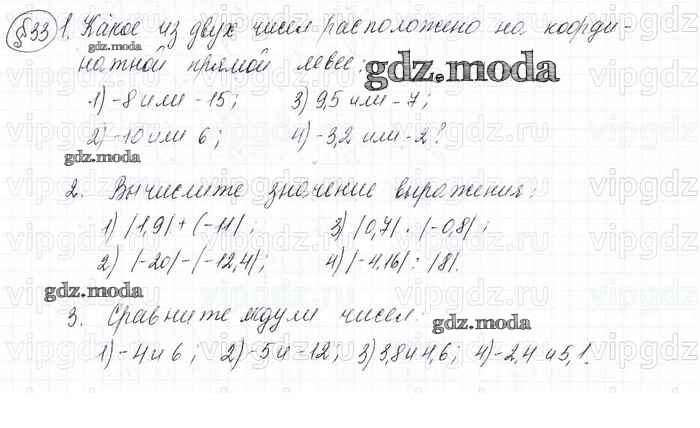 §33 1. Какое из двух чисел расположено на коорди-
gdz.moda
натной прямой левее:
gdz.moda
1) -8 или -15; 3) 9,5 или -7;
2) -10 или 6; 4) -3,2 или -2?
gdz.moda
2. Вычислите значение выражения:
1) |1,9| + |-11|; 3) |0,7| · |-0,8|;
2) |-20| - |-12,4|; 4) |-4,16| : |8|.
gdz.moda
3. Сравните модули чисел:
gdz.moda
1) -4 и 6; 2) -5 и -12; 3) 3,8 и 4,6; 4) -2,4 и 5,1.